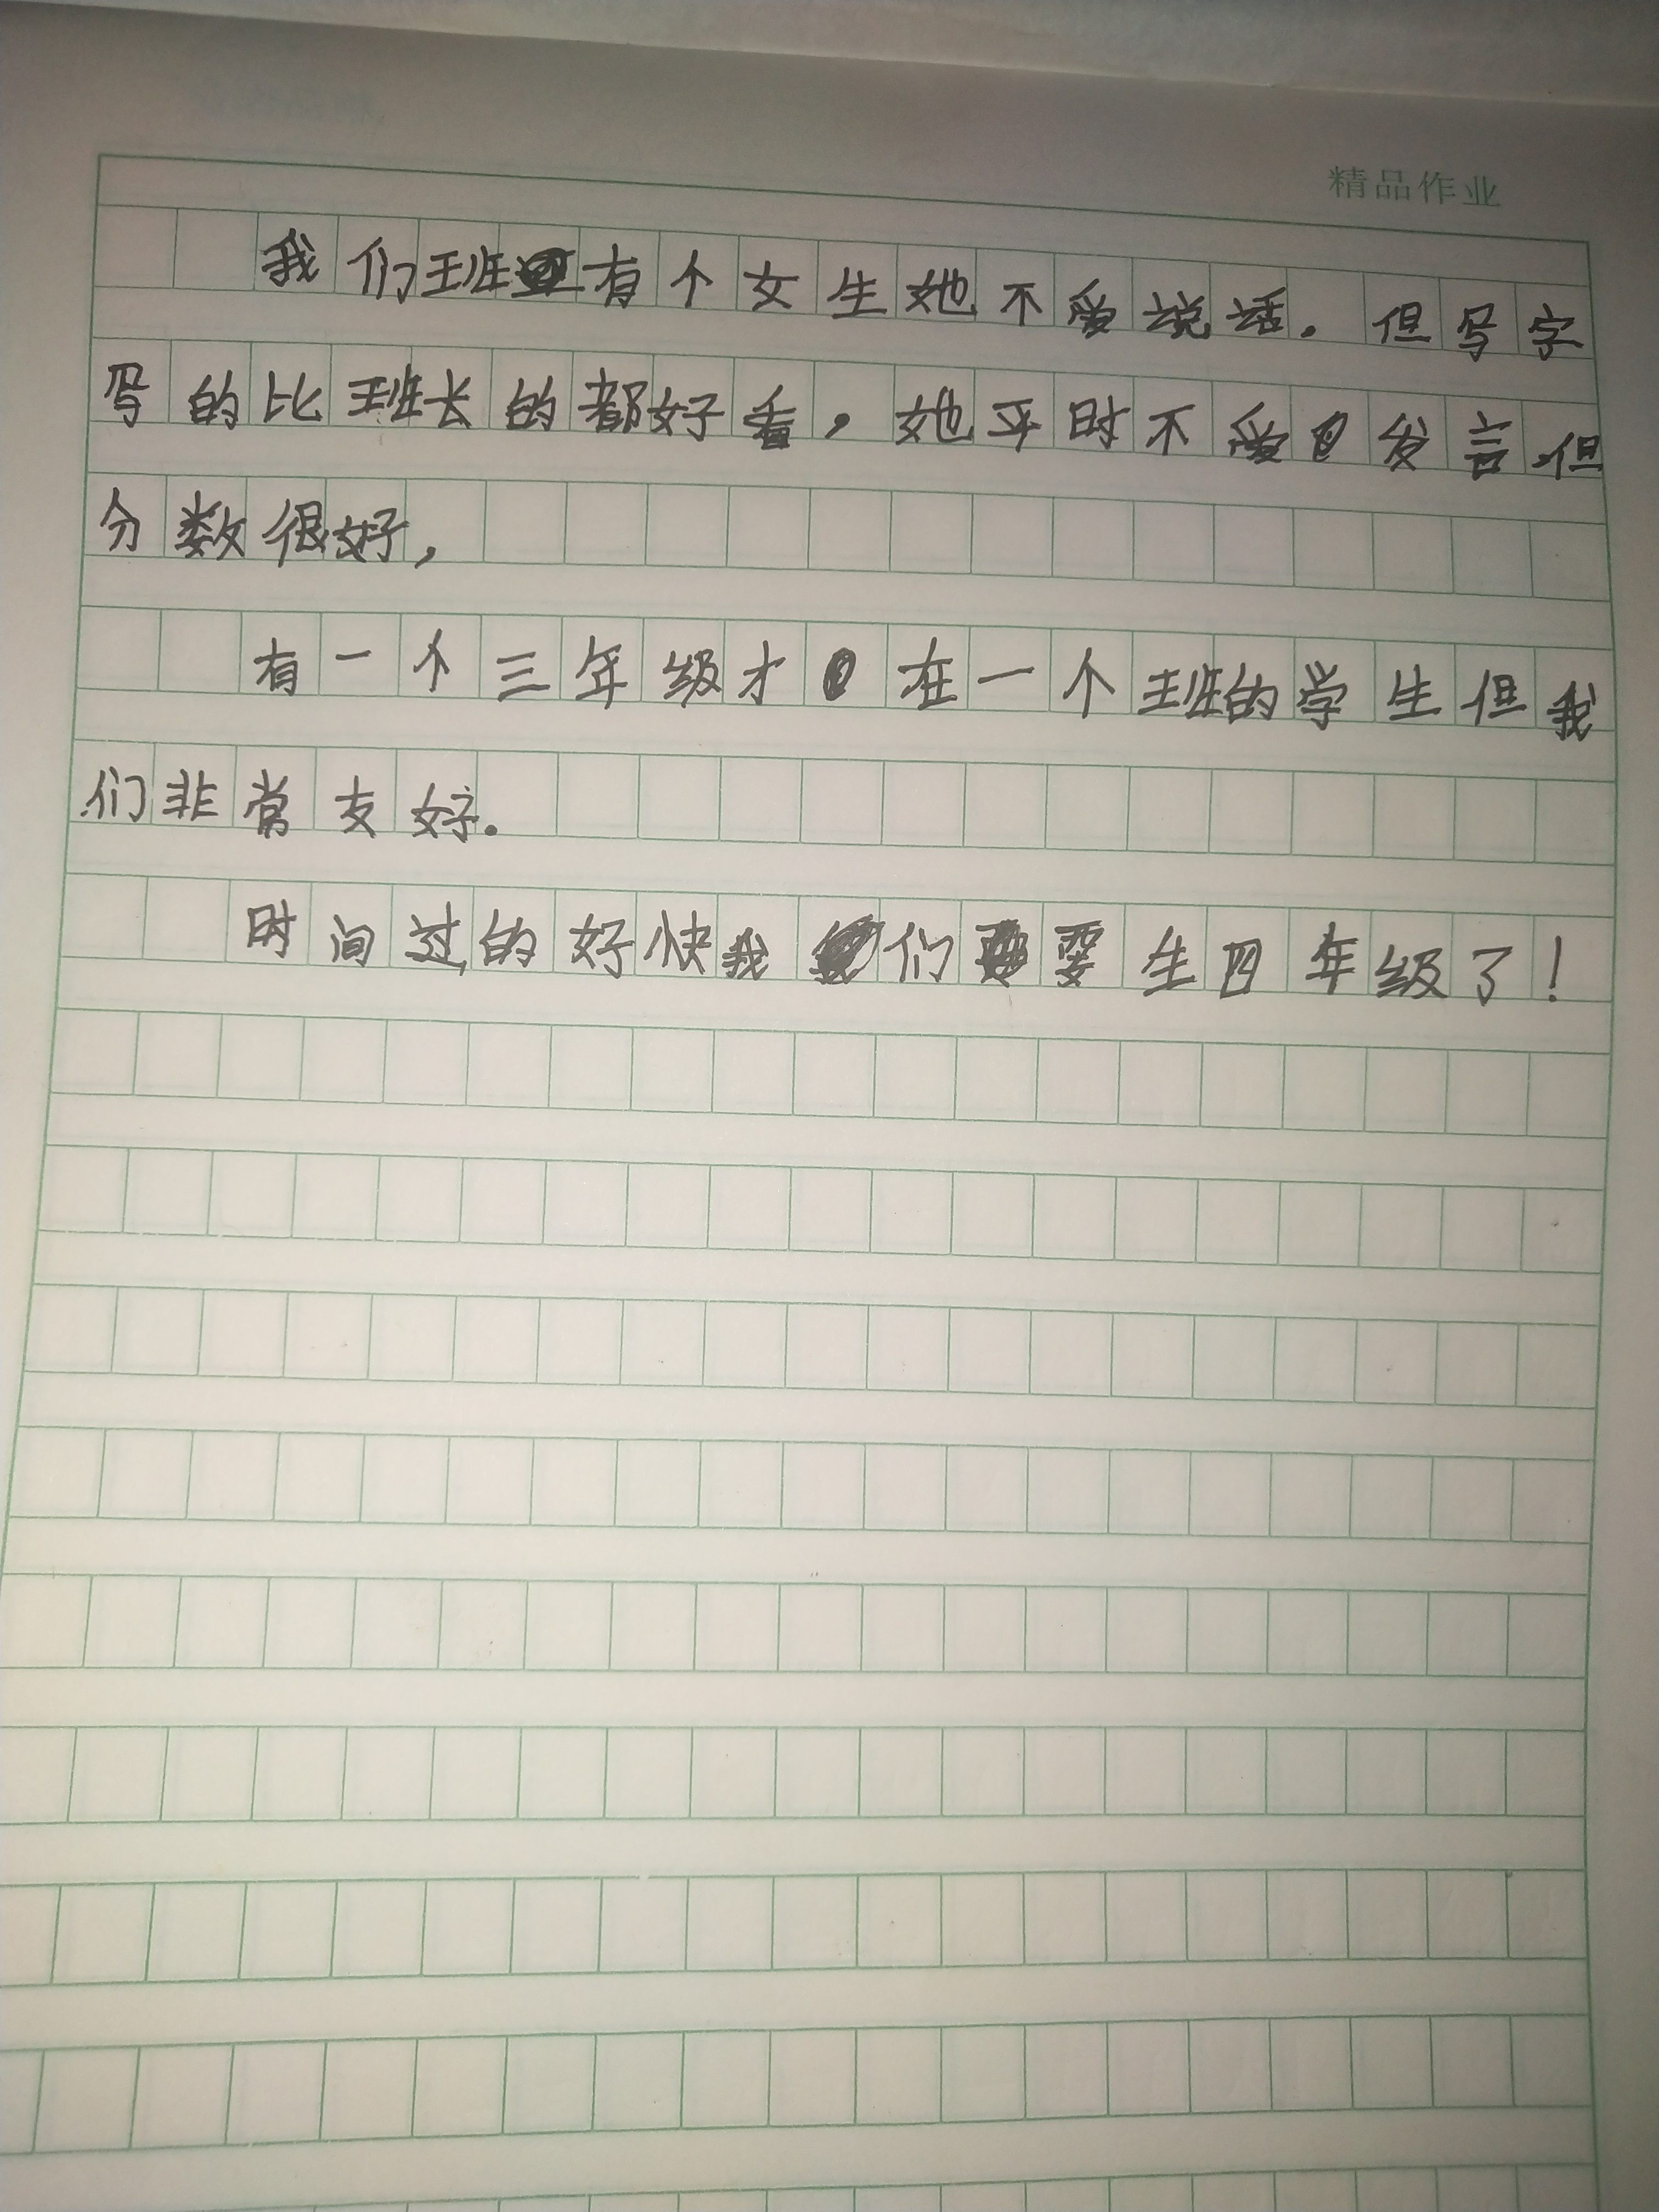 精品作业
我们班有个女生她不爱说话。但写字
写的比班长的都好看，她平时不爱发言但
分数很好，
有一个三年级才在一个班的学生但我
们非常友好。
时间过的好快我们要生四年级了！